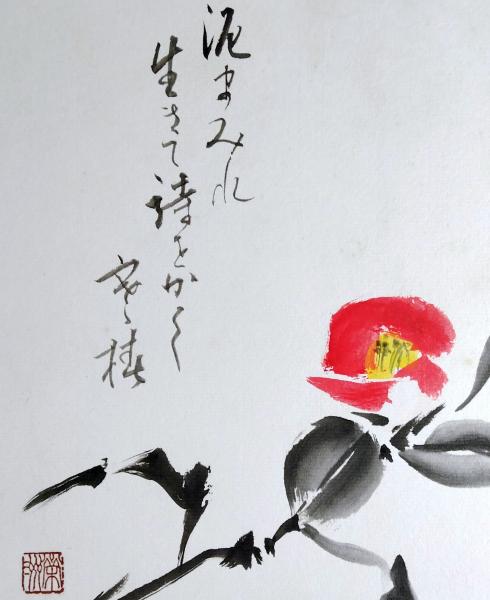 泥まみれ
生きて詩をかく
寒椿